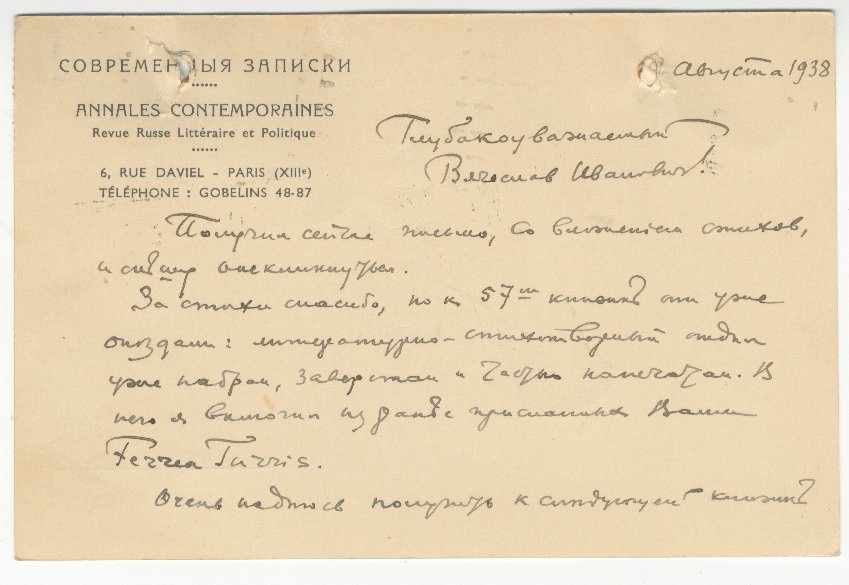 СОВРЕМЕННЫЯ ЗАПИСКИ
Августа 1938
ANNALES CONTEMPORAINES
Revue Russe Littéraire et Politique
6, RUE DAVIEL - PARIS (XIIIe)
TÉLÉPHONE : GOBELINS 48-87
Глубокоуважаемый
Вячеслав Иванович!
Получил сейчас письмо, со вложеніем стихов,
и спѣшу откликнуться.
За стихи спасибо, но к 57-ой книжкѣ они уже
опоздали: литературно-стихотворный отдѣл
уже набран, заверстан и частью напечатан. В
него я включил из ранѣе присланных Вами
Ferrea Turris.
Очень надѣюсь получить к слѣдующей книжкѣ